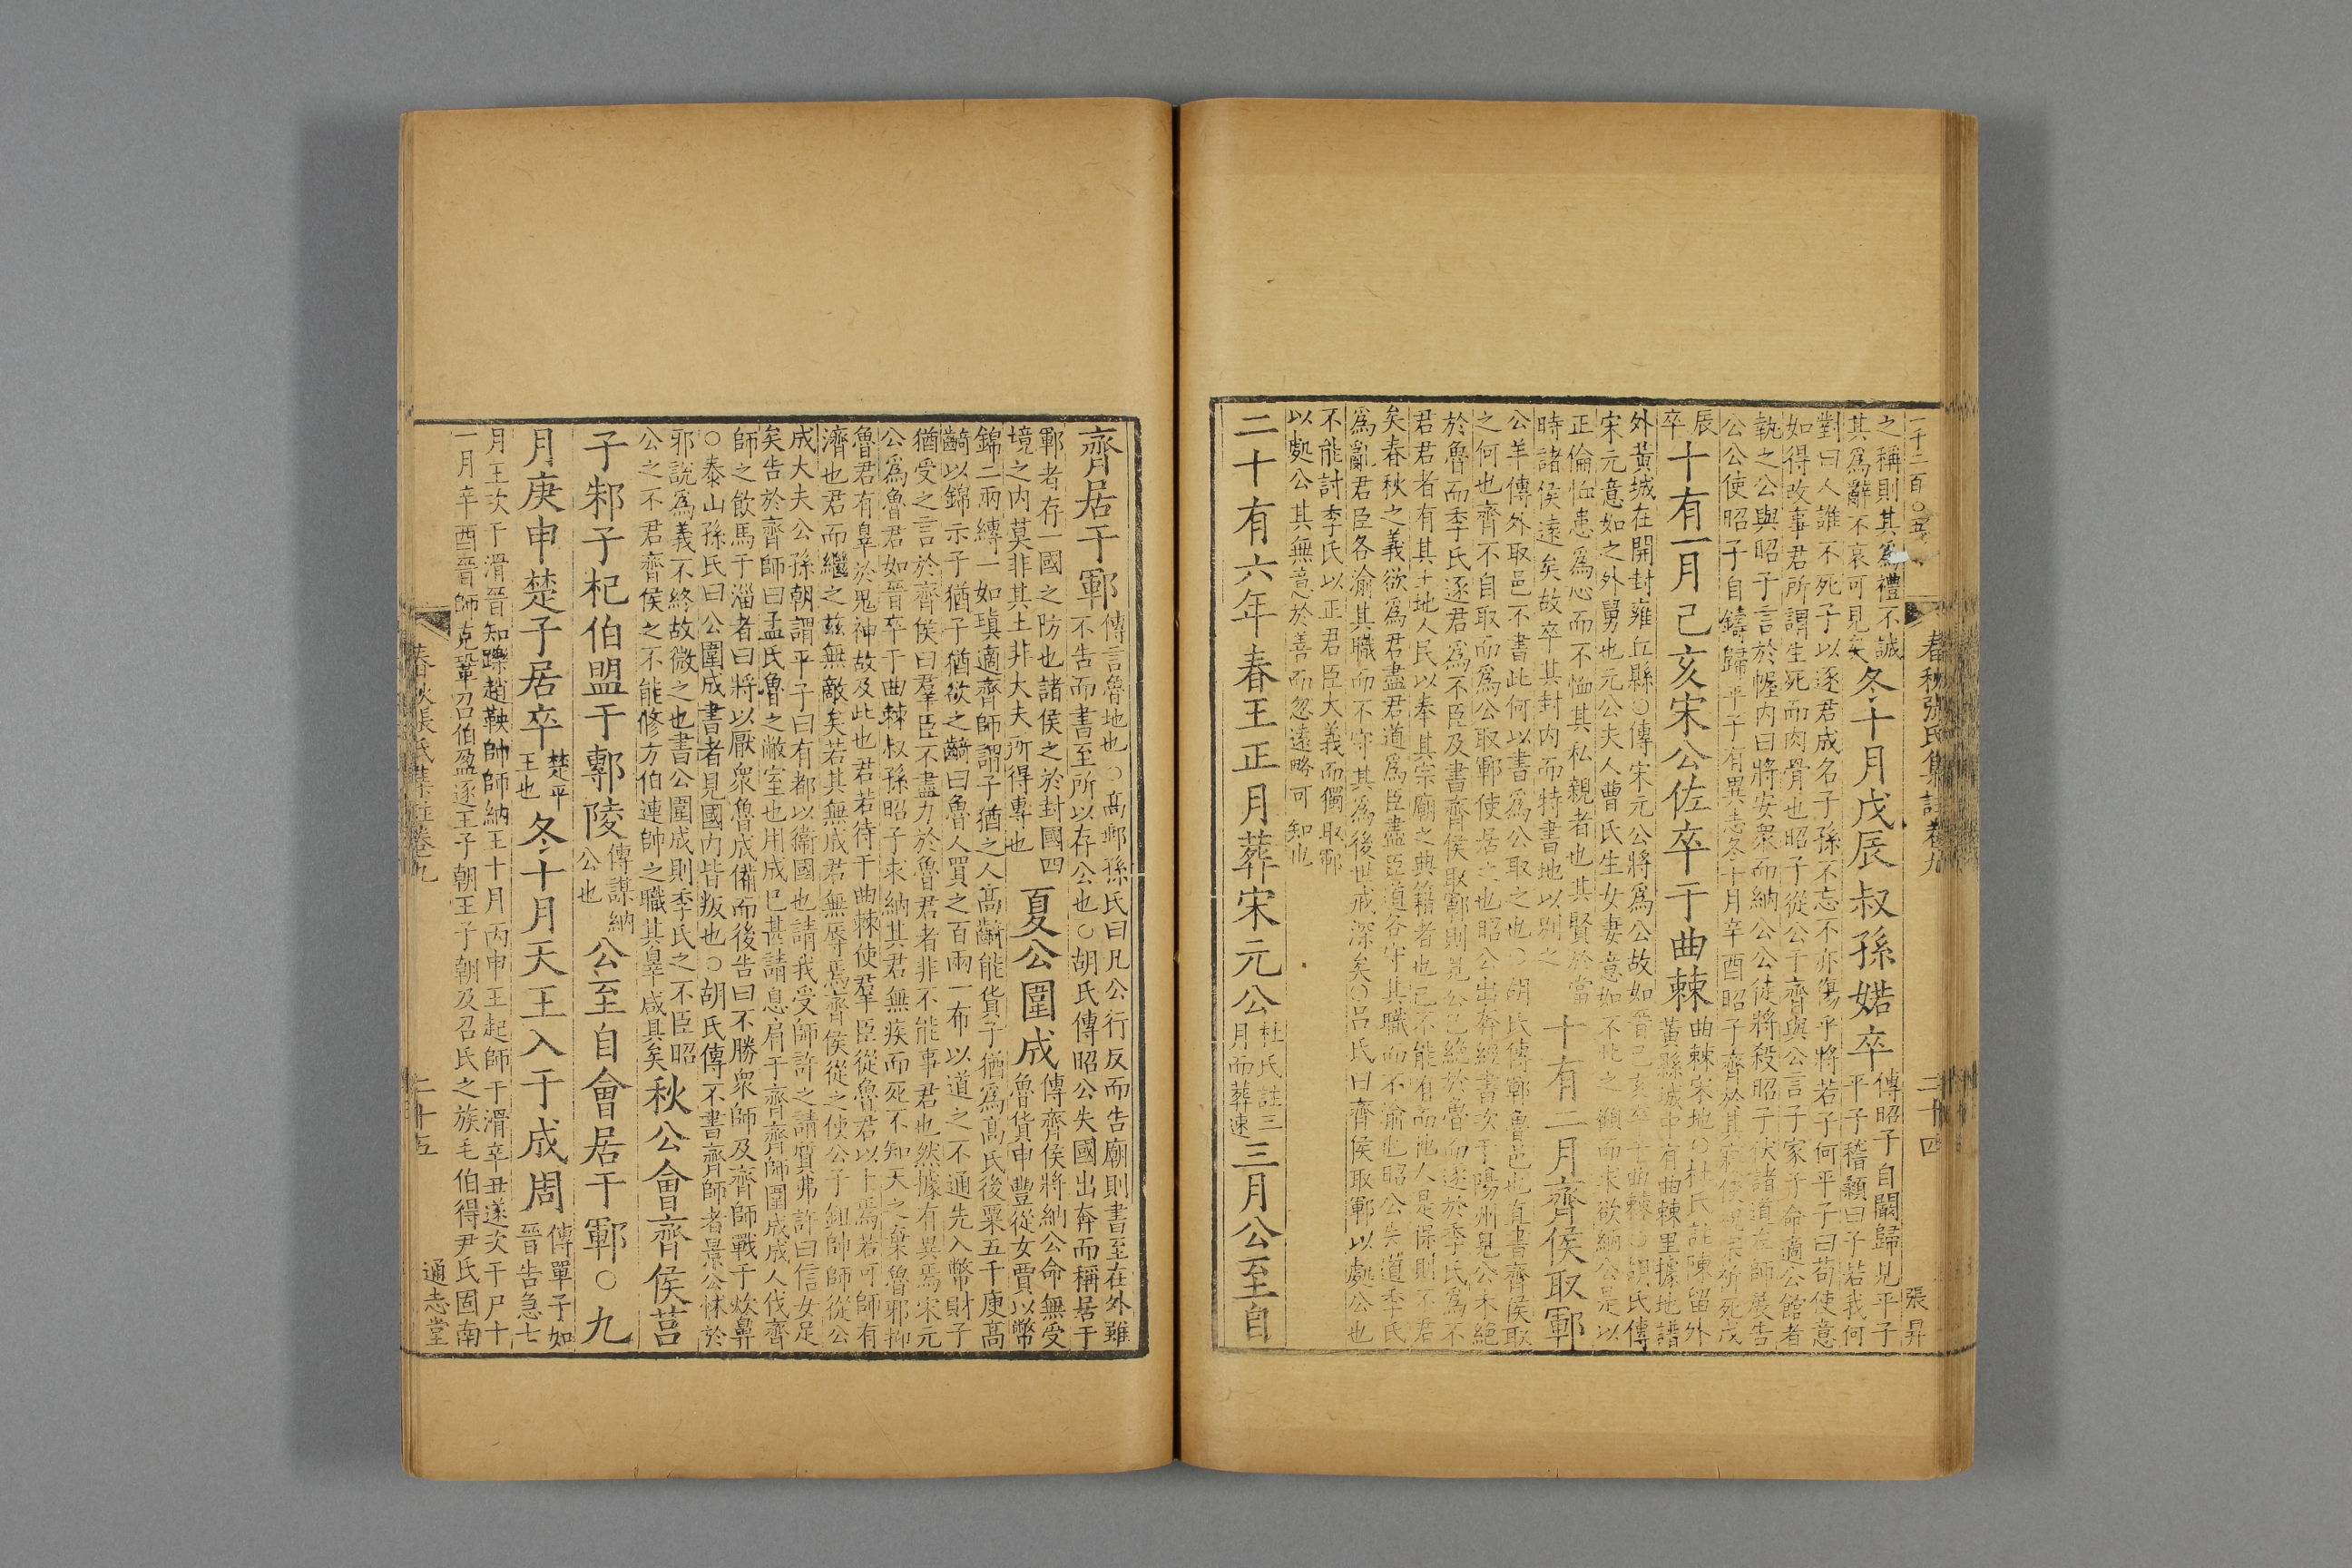 一千二百○五
春秋張氏集註卷九
二十四
張昇
之稱則其爲禮不誠
其爲辭不哀可見矣
冬十月戊辰叔孫婼卒
傳昭子自闞歸見平子
平子稽顙曰子若我何
對曰人誰不死子以逐君成名子孫不忘不亦傷乎將若子何平子曰苟使意
如得改事君所謂生死而肉骨也昭子從公于齊與公言子家子命適公館者
執之公與昭子言於幄内曰將安衆而納公公徒將殺昭子伏諸道左師展告
公公使昭子自鑄歸平子有異志冬十月辛酉昭子齊於其寢使祝宗祈死戊
辰
卒
十有一月己亥宋公佐卒于曲棘
曲棘宋地○杜氏註陳留外
黃縣城中有曲棘里據地譜
外黃城在開封雍丘縣○傳宋元公將爲公故如晉己亥卒于曲棘○胡氏傳
宋元意如之外舅也元公夫人曹氏生女妻意如不此之顧而求欲納公是以
正倫恤患爲心而不恤其私親者也其賢於當
時諸侯遠矣故卒其封内而特書地以別之
十有二月齊侯取鄆
公羊傳外取邑不書此何以書爲公取之也○胡氏傳鄆魯邑也直書齊侯取
之何也齊不自取而爲公取鄆使居之也昭公出奔經書次于陽州見公未絕
於魯而季氏逐君爲不臣及書齊侯取鄆則見公已絕於魯而遂於季氏爲不
君君者有其土地人民以奉其宗廟之典籍者也已不能有而他人是保則不君
矣春秋之義欲爲君盡君道爲臣盡臣道各守其職而不渝也昭公失道季氏
爲亂君臣各渝其職而不守其爲後世戒深矣○呂氏曰齊侯取鄆以處公也
不能討季氏以正君臣大義而獨取鄆
以處公其無意於善而忽遠略可知也
二十有六年春王正月葬宋元公
杜氏註三
月而葬速
三月公至自
齊居于鄆
傳言魯地也○高郵孫氏曰凡公行反而告廟則書至在外雖
不告而書至所以存公也○胡氏傳昭公失國出奔而稱居于
鄆者存一國之防也諸侯之於封國四
境之内莫非其土非大夫所得專也
夏公圍成
傳齊侯將納公命無受
魯貨申豐從女賈以幣
錦二兩縳一如瑱適齊師謂子猶之人高齮能貨子猶爲高氏後粟五千庾高
齮以錦示子猶子猶欲之齮曰魯人買之百兩一布以道之不通先入幣財子
猶受之言於齊侯曰羣臣不盡力於魯君者非不能事君也然據有異焉宋元
公爲魯君如晉卒于曲棘叔孫昭子求納其君無疾而死不知天之棄魯邪抑
魯君有辠於鬼神故及此也君若待于曲棘使羣臣從魯君以卜焉若可師有
濟也君而繼之茲無敵矣若其無成君無辱焉齊侯從之使公子鉏帥師從公
成大夫公孫朝謂平子曰有都以衛國也請我受師許之請質弗許曰信女足
矣告於齊師曰孟氏魯之敝室也用成已甚請息肩于齊齊師圍成成人伐齊
師之飲馬于淄者曰將以厭衆魯成備而後告曰不勝衆師及齊師戰于炊鼻
○泰山孫氏曰公圍成書者見國内皆叛也○胡氏傳不書齊師者景公怵於
邪說爲義不終故微之也書公圍成則季氏之不臣昭
公之不君齊侯之不能修方伯連帥之職其辠咸具矣
秋公會齊侯莒
子邾子杞伯盟于鄟陵
傳謀納
公也
公至自會居于鄆○九
月庚申楚子居卒
楚平
王也
冬十月天王入于成周
傳單子如
晉告急七
月王次于滑晉知躒趙鞅帥師納王十月丙申王起師于滑辛丑遂次于尸十
一月辛酉晉師克鞏召伯盈逐王子朝王子朝及召氏之族毛伯得尹氏固南
春秋張氏集註卷九
二十五
通志堂